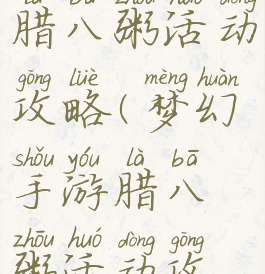 là bā zhōu huó dòng
腊八粥活动
gōng lüè mèng huàn
攻略(梦幻
shǒu yóu là bā
手游腊八
zhōu huó dòng gōng
粥活动攻